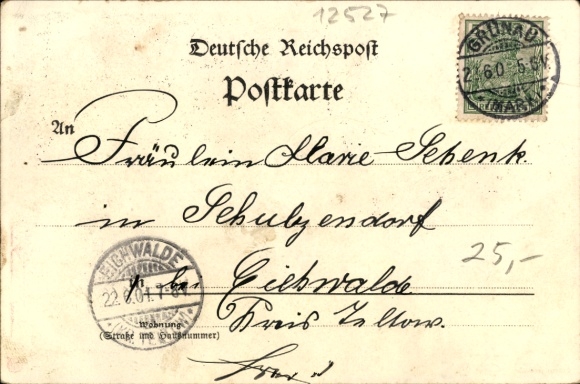 12527
Deutsche Reichspost
Postkarte
GRÜNAU
5.6V.
(MARK)
An
Fräulein Marie Schenk
in Schulzendorf
25,-
EICHWALDE
22.6.01.7-8V.
bei Eichwalde
Kreis Teltow.
Wohnung
(Straße und Hausnummer)